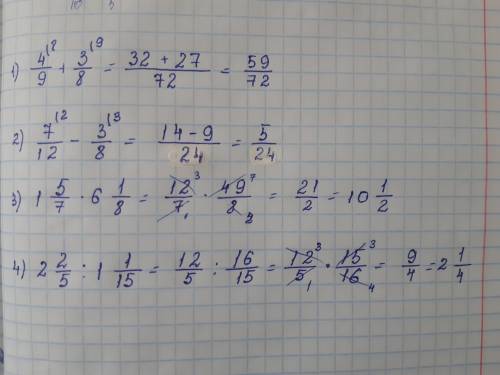 1) 4/9 (8 + 3/8 (9 = (32 + 27)/72 = 59/72
2) 7/12 (2 - 3/8 (3 = (14 - 9)/24 = 5/24
3) 1 5/7 · 6 1/8 = 12/7 3 1 · 49/8 7 2 = 21/2 = 10 1/2
4) 2 2/5 : 1 1/15 = 12/5 : 16/15 = 12/5 3 1 · 15/16 3 4 = 9/4 = 2 1/4